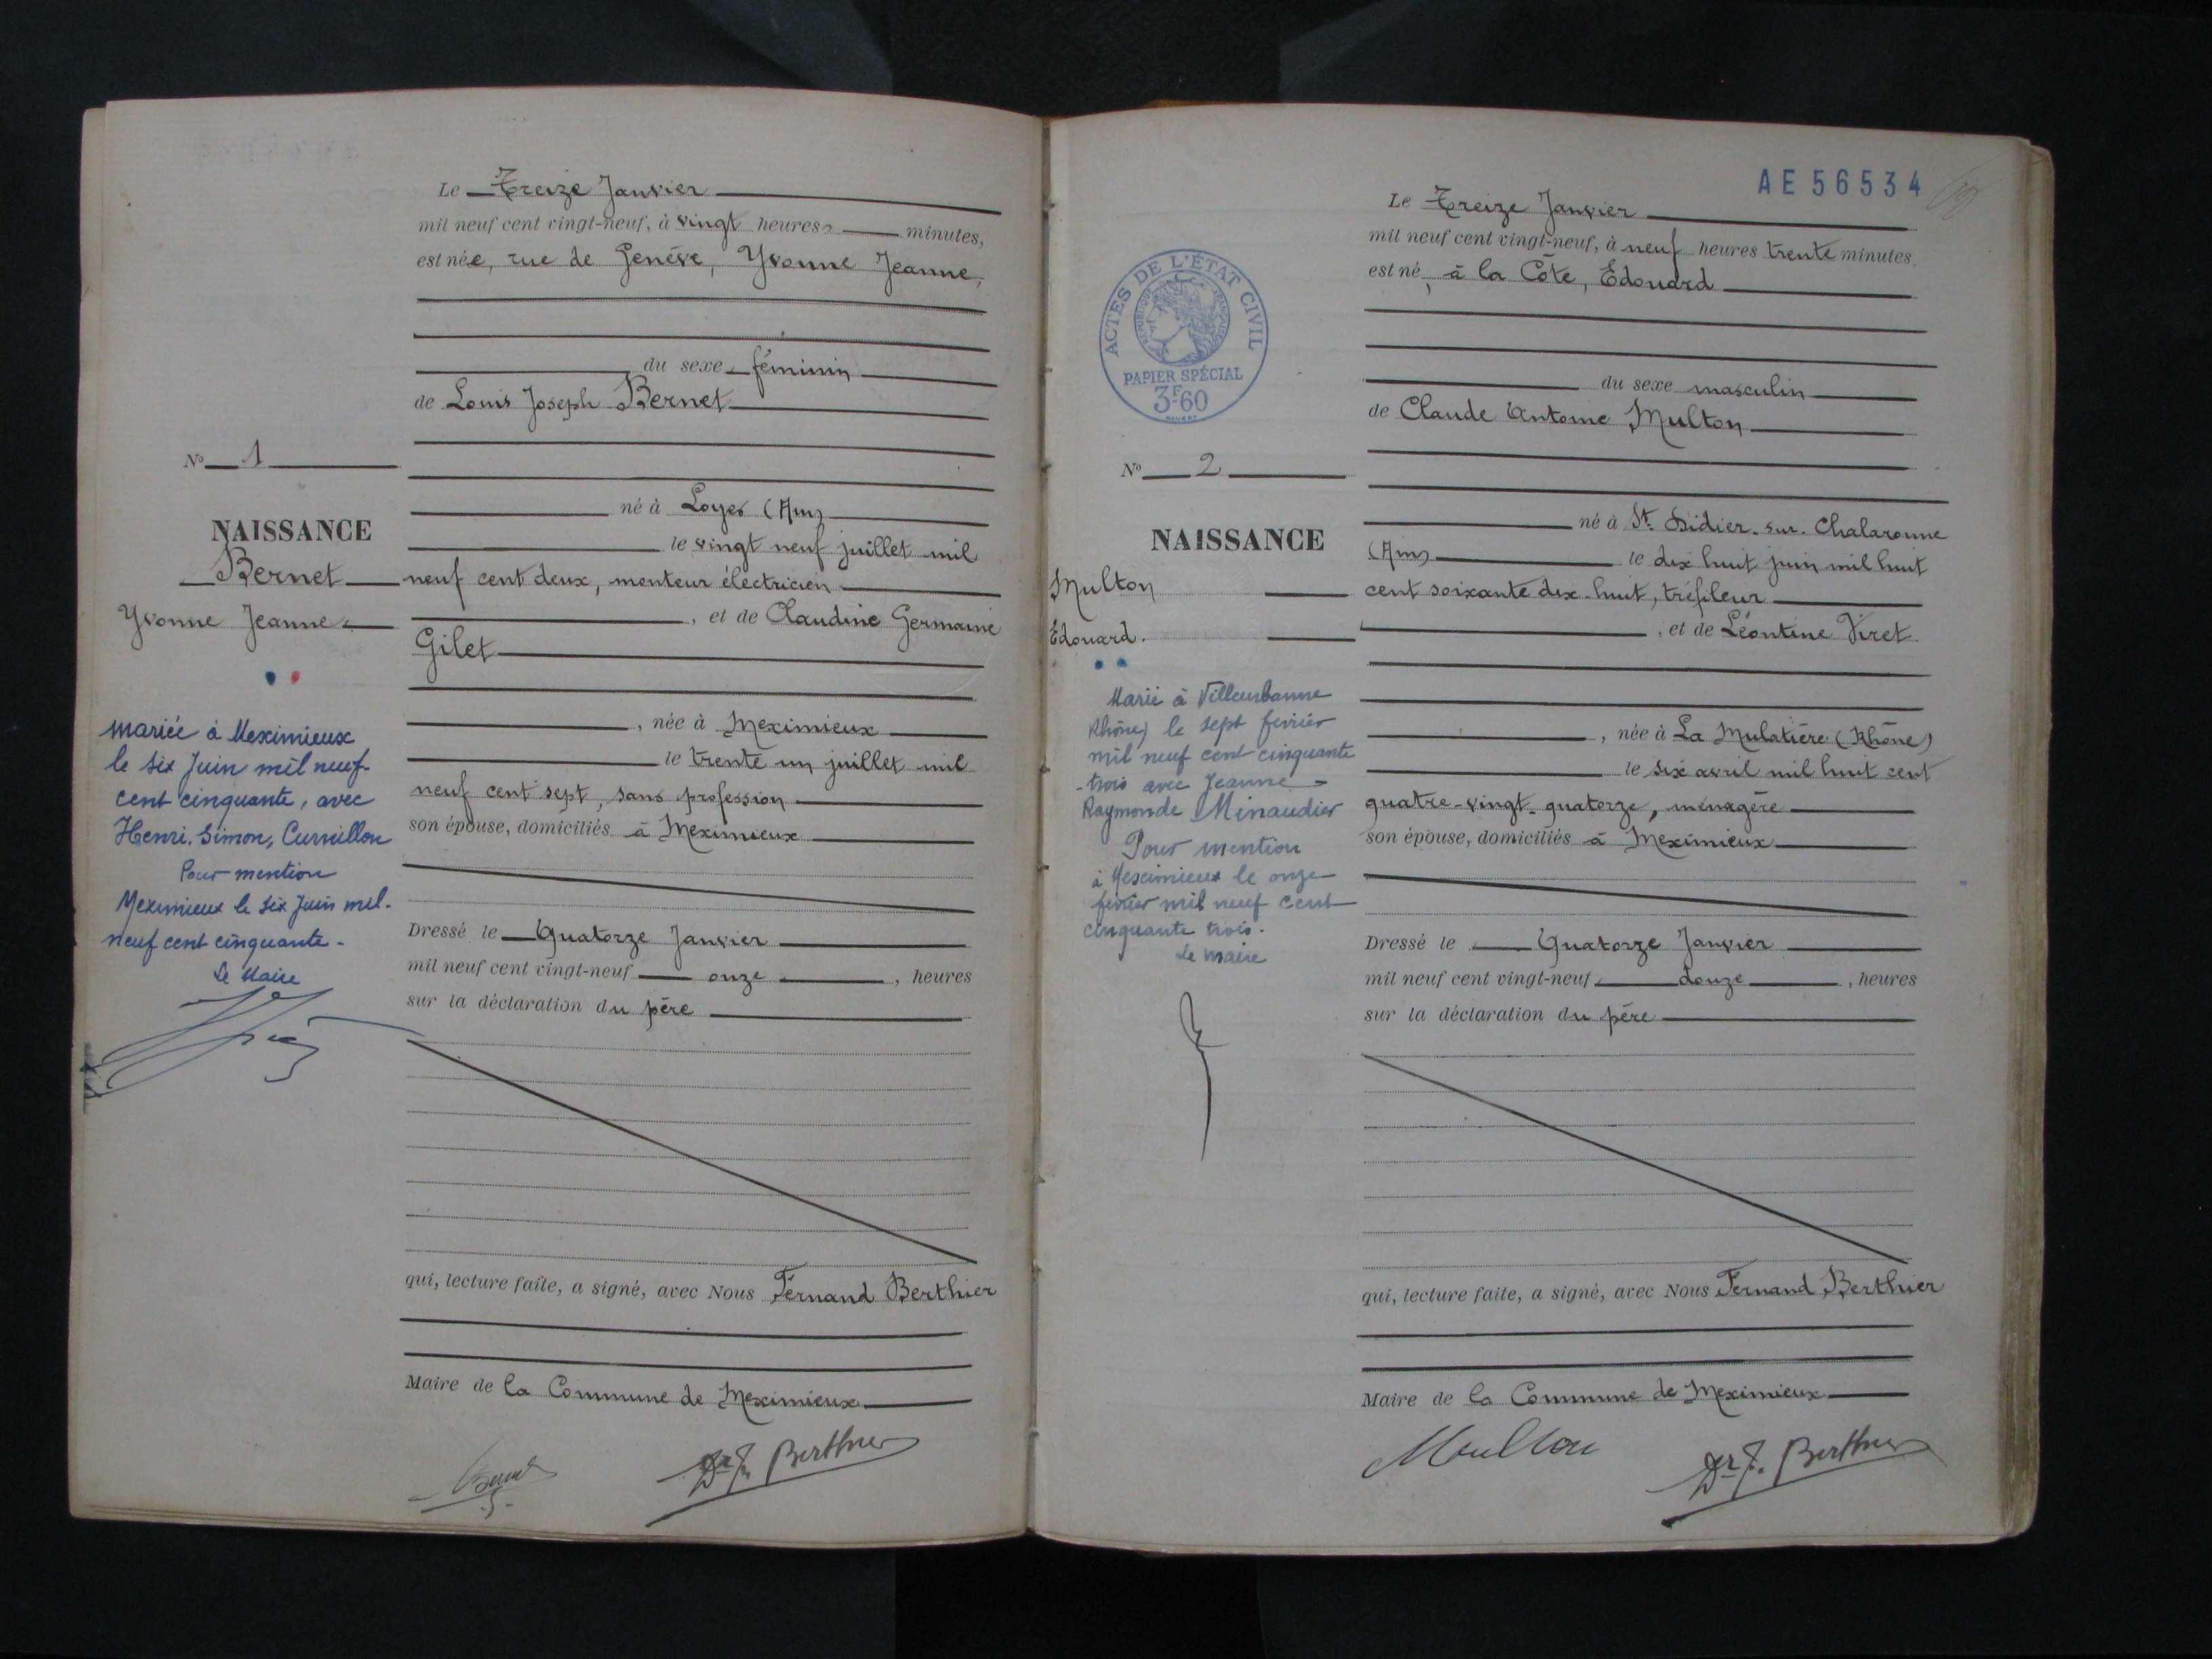 Le Treize Janvier
mil neuf cent vingt-neuf, à vingt heures minutes,
est née, rue de Genève, Yvonne Jeanne,
du sexe féminin
de Louis Joseph Bernet
né à Loyes (Ain)
le vingt neuf juillet mil
neuf cent deux, monteur électricien
, et de Claudine Germaine
Gilet
, née à Meximieux
le trente un juillet mil
neuf cent sept, sans profession
son épouse, domiciliés à Meximieux
Dressé le Quatorze Janvier
mil neuf cent vingt-neuf onze , heures
sur la déclaration du père
qui, lecture faite, a signé, avec Nous Fernand Berthier
Maire de la Commune de Meximieux
Dr F. Berthier
N° 1
NAISSANCE
Bernet
Yvonne Jeanne
mariée à Meximieux
le six Juin mil neuf
cent cinquante, avec
Henri, Simon,
Pour mention
Meximieux le six Juin mil-
neuf cent cinquante -
Le Maire
AE 56534
Le Treize Janvier
mil neuf cent vingt-neuf, à neuf heures trente minutes.
est né, à la Côte, Edouard
du sexe masculin
de Claude Antoine Multon
né à St. Didier-sur-Chalaronne
(Ain) le dix huit juin mil huit
cent soixante dix-huit, tréfileur
, et de Léontine Viret
, née à La Mulatière (Rhône)
le six avril mil huit cent
quatre-vingt-quatorze, ménagère
son épouse, domiciliés à Meximieux
Dressé le Quatorze Janvier
mil neuf cent vingt-neuf douze , heures
sur la déclaration du père
qui, lecture faite, a signé, avec Nous Fernand Berthier
Maire de la Commune de Meximieux
Moulton
Dr F. Berthier
ACTES DE L'ÉTAT CIVIL
RÉPUBLIQUE FRANÇAISE
PAPIER SPÉCIAL
3F60
N° 2
NAISSANCE
Multon
Edouard.
Marié à Villeurbanne
Rhône) le sept février
mil neuf cent cinquante
-trois avec Jeanne
Raymonde Minaudier
Pour mention
à Meximieux le onze
février mil neuf cent
cinquante trois.
Le maire